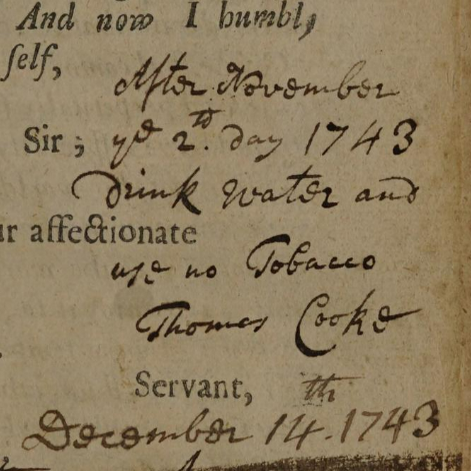 And now I humbly
self,
After November
Sir; ye 2th. day 1743
drink water and
ur affectionate
use no Tobacco
Thomas Cooke
Servant,
December 14th. 1743